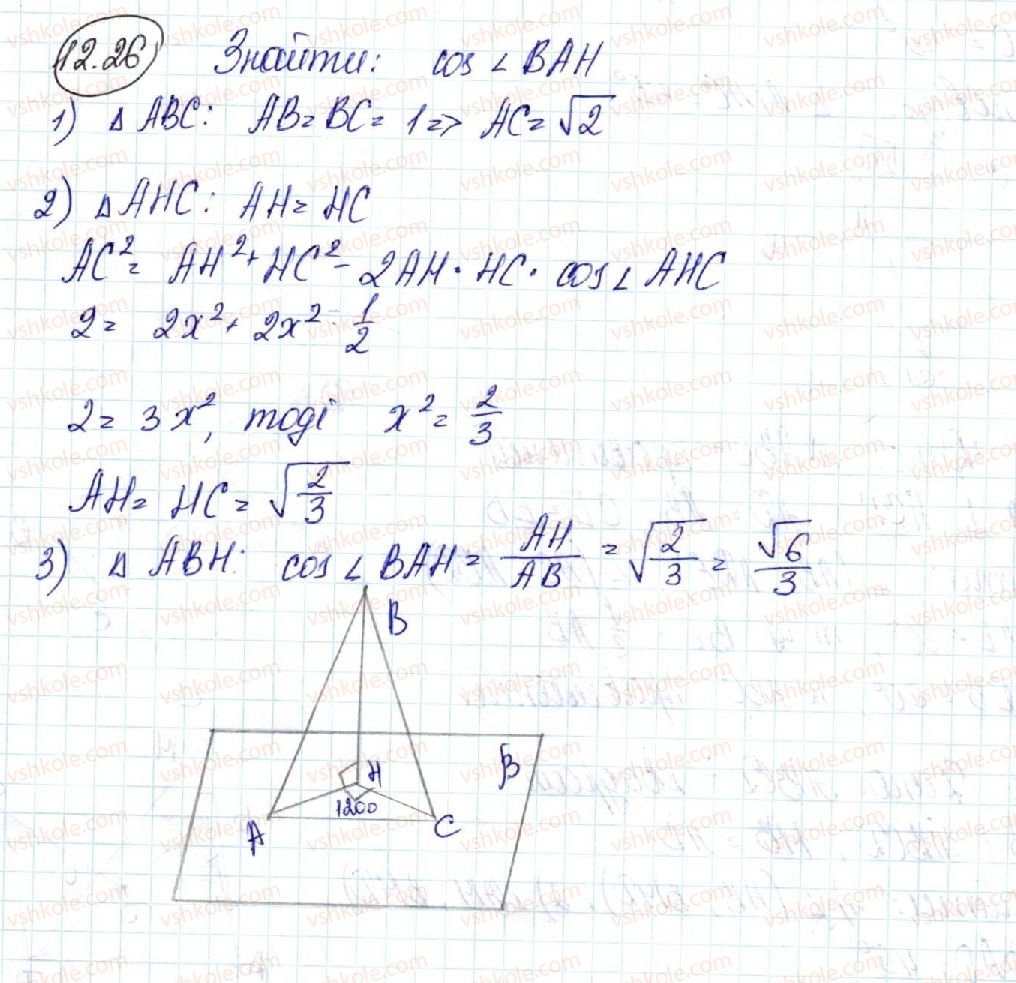 12.26 Знайти: cos ∠ BAH
1) Δ ABC: AB = BC = 1 => AC = √2
2) Δ AHC: AH = HC
AC² = AH² + HC² - 2AH · HC · cos ∠ AHC
2 = 2x² + 2x² · 1/2
2 = 3x², тоді x² = 2/3
AH = HC = √(2/3)
3) Δ ABH: cos ∠ BAH = AH/AB = √(2/3) = √6/3
B
β
H
1200
A
C